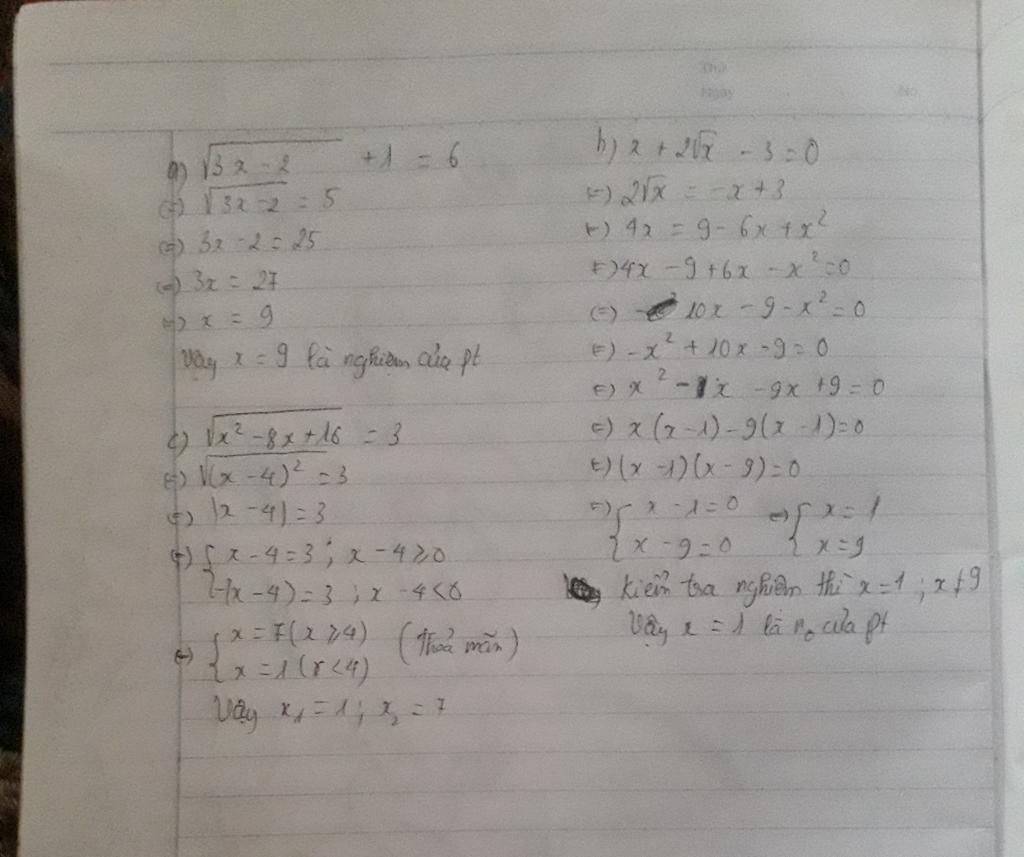 Thứ
Ngày No.
a) √(3x - 2) + 1 = 6
(=) √(3x - 2) = 5
(=) 3x - 2 = 25
(=) 3x = 27
(=) x = 9
Vậy x = 9 là nghiệm của pt
c) √(x² - 8x + 16) = 3
(=) √(x - 4)² = 3
(=) |x - 4| = 3
(=) { x - 4 = 3 ; x - 4 ⩾ 0
-(x - 4) = 3 ; x - 4 < 0
(=) { x = 7 (x ⩾ 4) (thoả mãn)
x = 1 (x < 4)
Vậy x₁ = 1 ; x₂ = 7
b) x + 2√x - 3 = 0
(=) 2√x = -x + 3
(=) 4x = 9 - 6x + x²
(=) 4x - 9 + 6x - x² = 0
(=) 10x - 9 - x² = 0
(=) -x² + 10x - 9 = 0
(=) x² - 1x - 9x + 9 = 0
(=) x(x - 1) - 9(x - 1) = 0
(=) (x - 1)(x - 9) = 0
(=) { x - 1 = 0 (=) { x = 1
x - 9 = 0 x = 9
Kiểm tra nghiệm thì x = 1 ; x ≠ 9
Vậy x = 1 là n₀ của pt